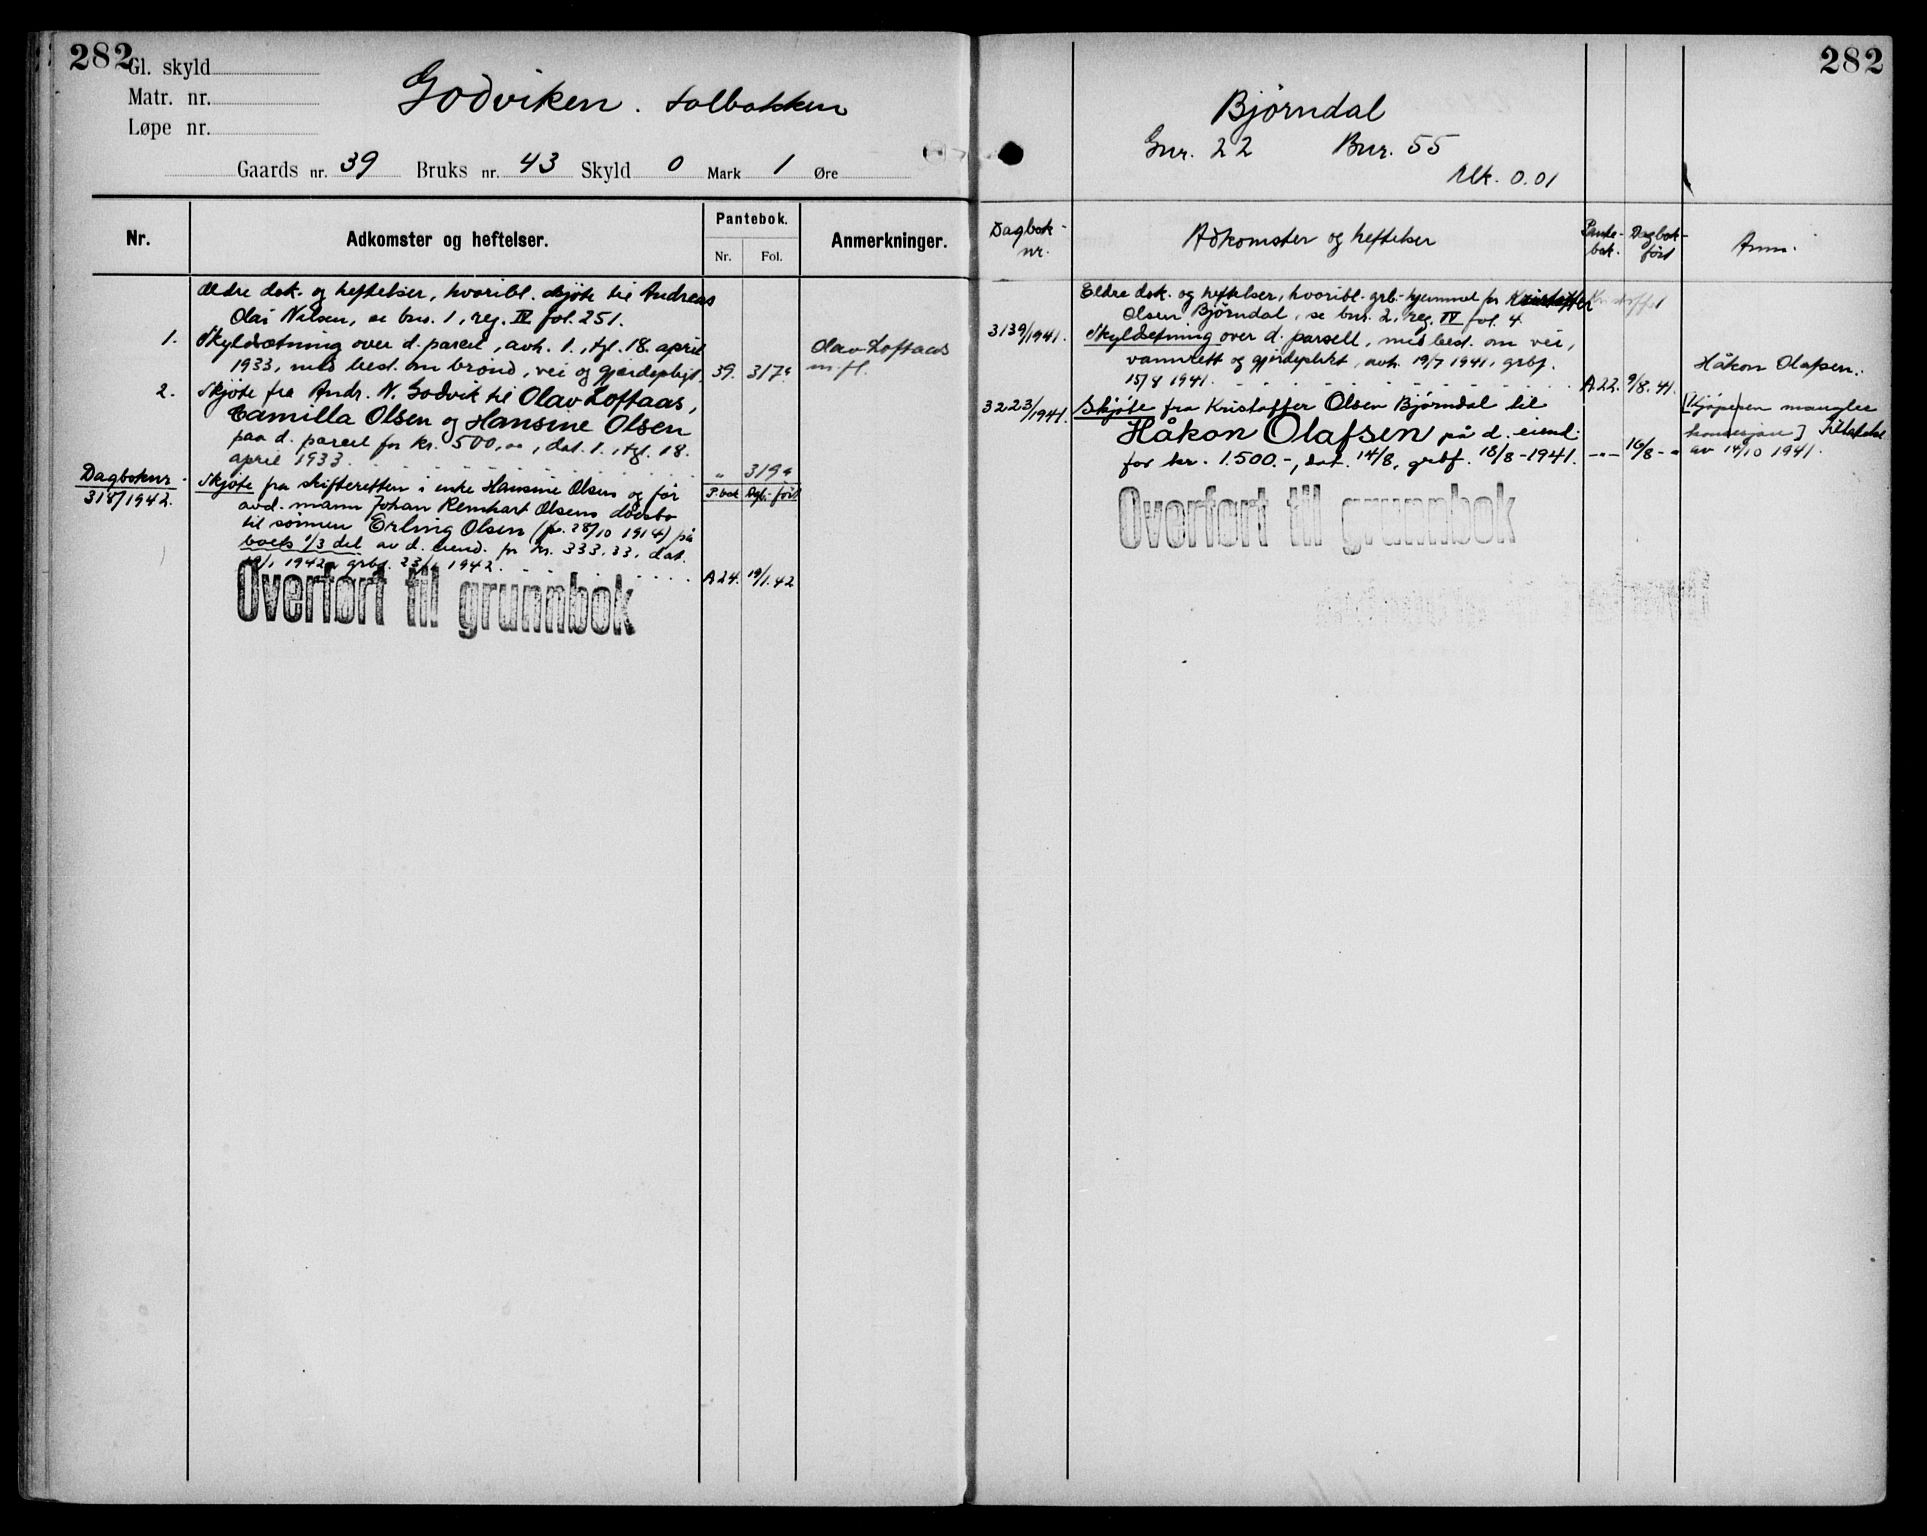 282
Gl. skyld
Matr. nr.
Løpe nr.
Godviken. Solbakken
Gaards nr. 39 Bruks nr. 43 Skyld 0 Mark 1 Øre
Nr. Adkomster og heftelser. Pantebok. Nr. Fol. Anmerkninger.
Ældre dok. og heftelser, hvoribl. skjøte til Andreas
Olai Nilsen, se bnr. 1, reg. IV fol. 251.
1. Skyldsætning over d. parcel, avh. 1., tgl. 18. april
1933, med best. om brønd, vei og gjerdepligt. 39. 317a
Olav Loftaas
m. fl.
2. Skjøte fra Andr. N. Godvik til Olav Loftaas,
Camilla Olsen og Hansine Olsen
paa d. parcel for kr. 500,00, dat. 1., tgl. 18.
april 1933. " 319a
Dagboknr. P.bok Dgb. ført
318/1942. Skjøte fra skifteretten i enke Hansine Olsens og før
avd. mann Johan Reinhart Olsens dødsbo
til sønnen Erling Olsen (f. 28/10 1914) på
boets 1/3 del av d. eiend. for kr. 333,33, dat.
19/1 1942, grbf. 23/1 1942. A 24. 19/1.42
Overført til grunnbok
282
Bjørndal
Gnr. 22 Bnr. 55
Mk. 0.01
Dagbok-
nr. Adkomster og heftelser Pante-
bok. Dagbok-
ført Anm.
Eldre dok. og heftelser, hvoribl. grb.-hjemmel for Kristoffer
Olsen Bjørndal, se bnr. 2, reg. IV fol. 4.
3139/1941. Skyldsetning over d. parsell, med best. om vei,
vannrett og gjerdeplikt, avh. 19/7 1941, grbf.
15/8 1941. A 22. 9/8.41.
Håkon Olafsen.
3223/1941. Skjøte fra Kristoffer Olsen Bjørndal til
Håkon Olafsen på d. eiend.
for kr. 1.500.-, dat. 14/8, grbf. 18/8-1941. -"- 16/8 - "
[Kjøperen mangler
konsesjon]
av 14/10 1941.
Overført til grunnbok